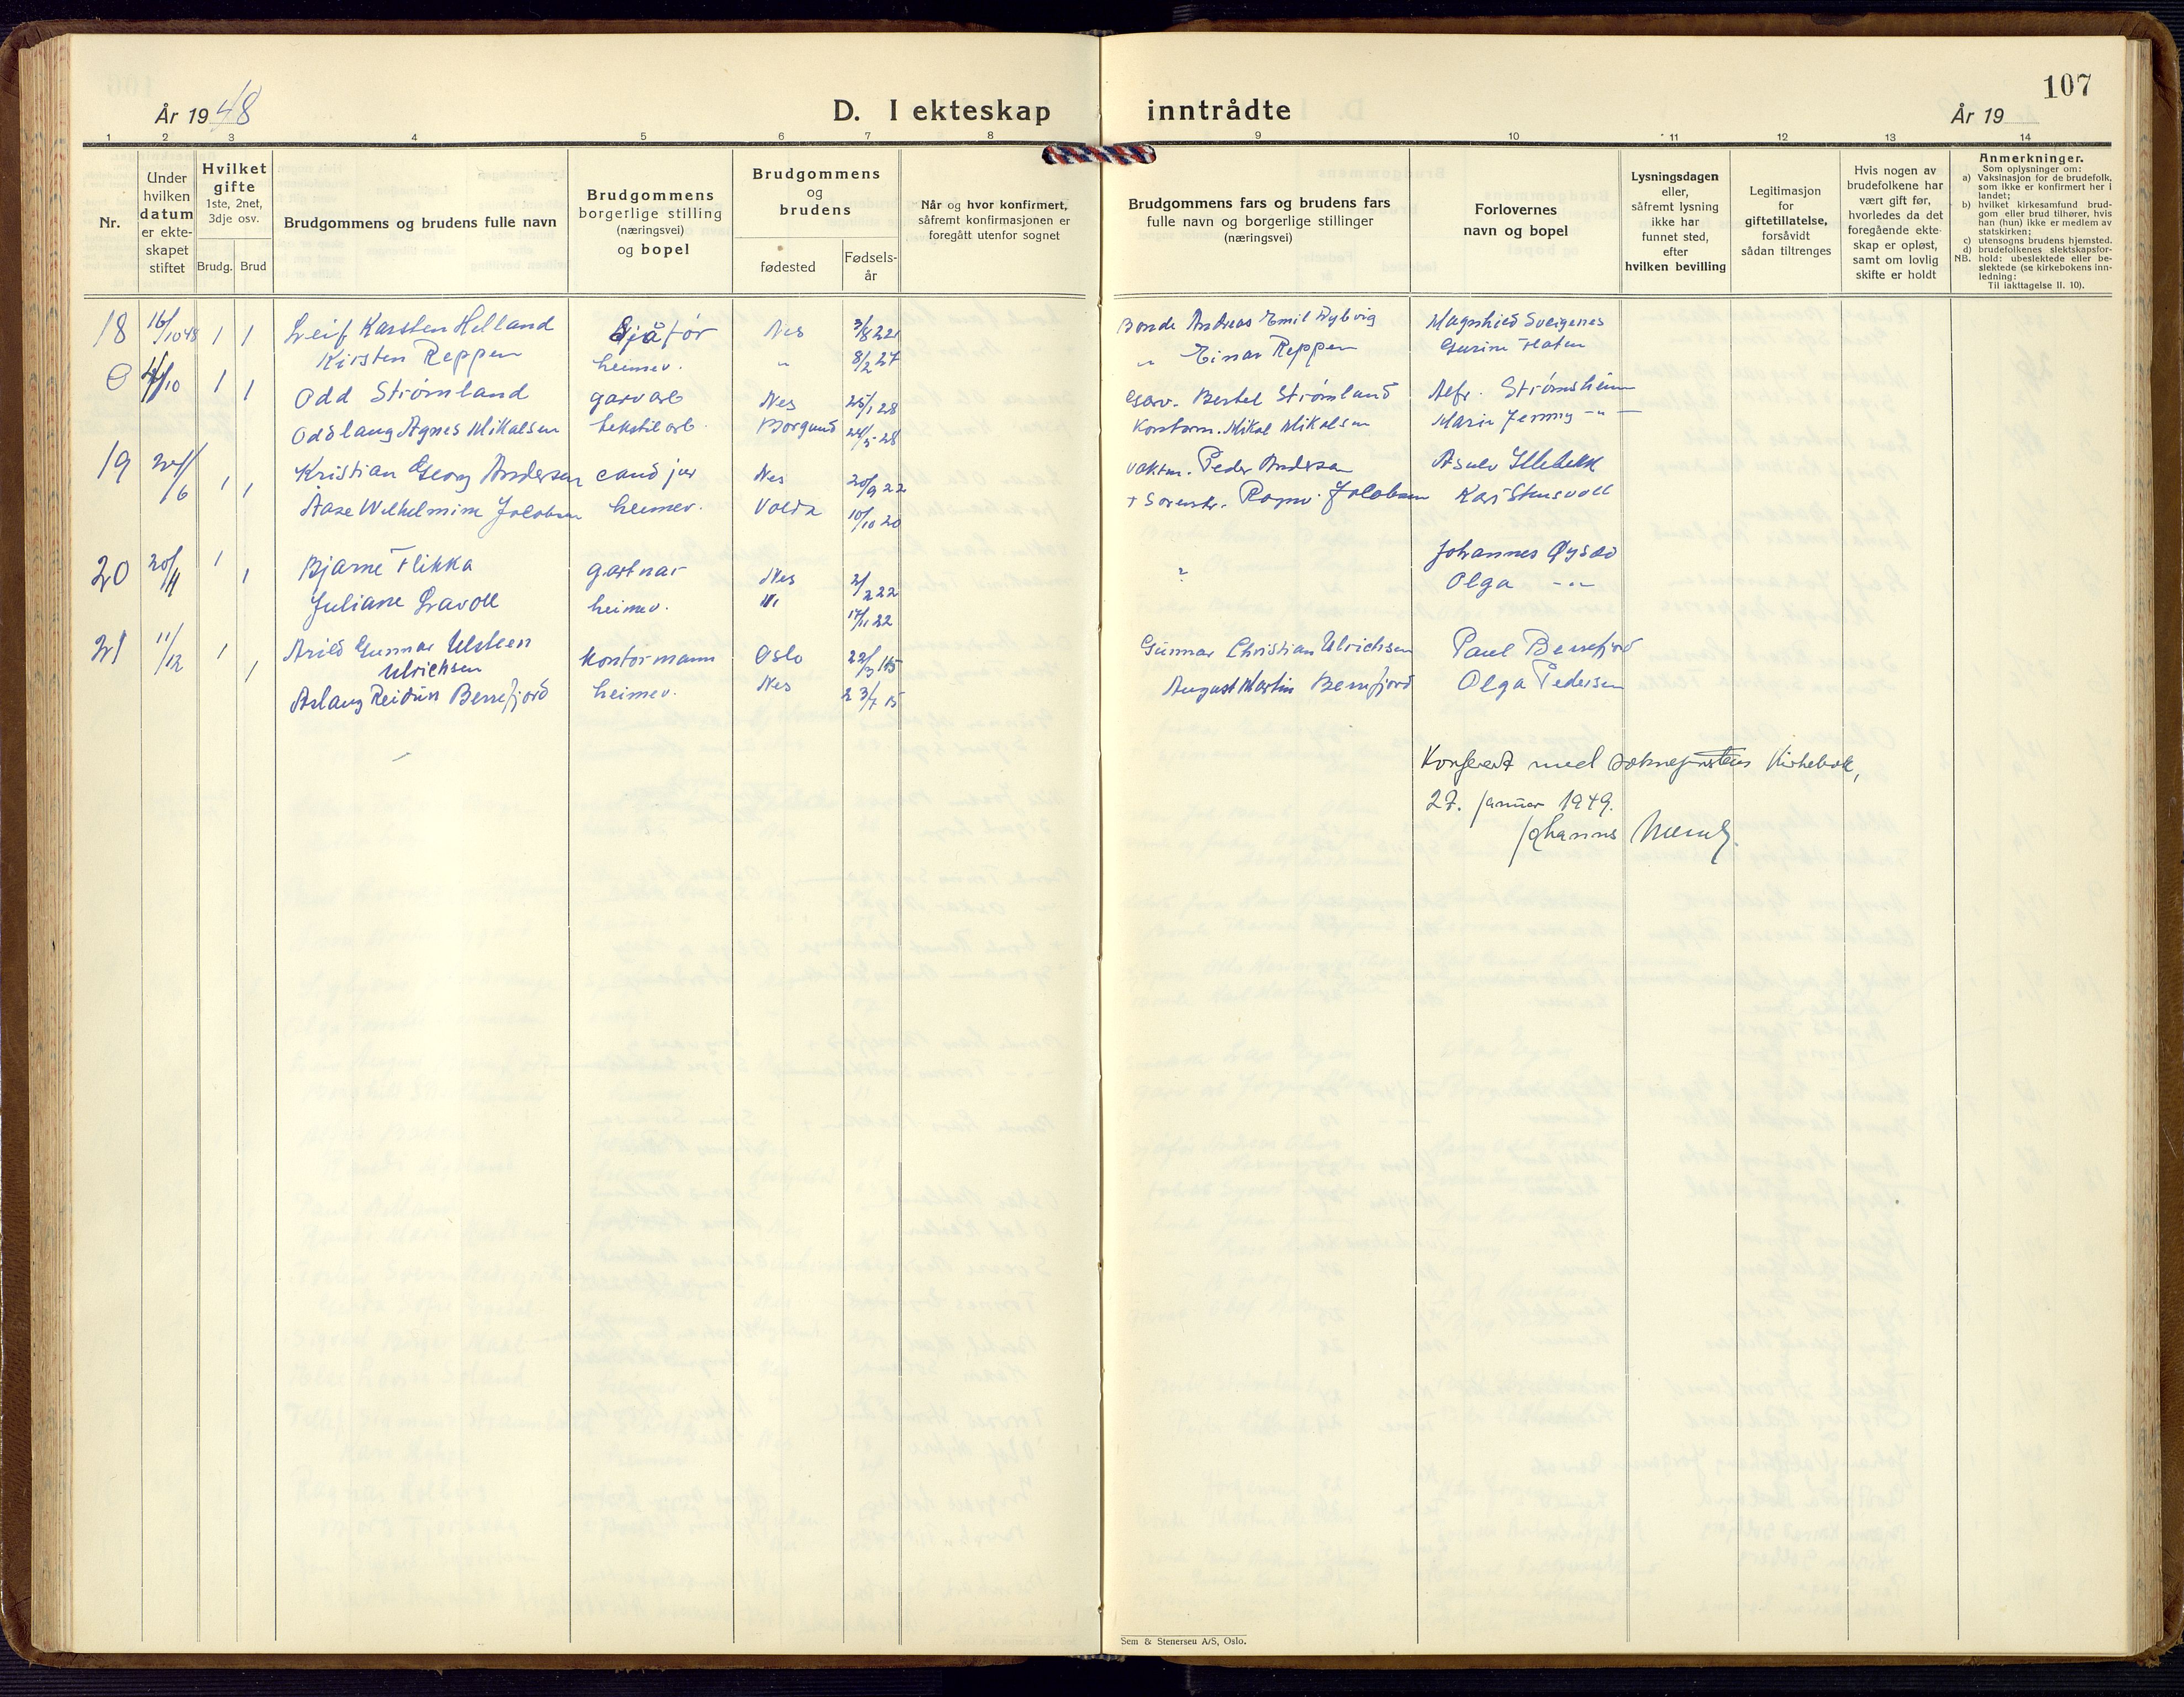 107
År 1948
D. I ekteskap inntrådte
År 19
1 2 3 4 5 6 7 8 9 10 11 12 13 14
Nr.
Under hvilken datum er ekte- skapet stiftet
Hvilket gifte
1ste, 2net, 3dje osv.
Brudg. Brud
Brudgommens og brudens fulle navn
Brudgommens borgerlige stilling (næringsvei) og bopel
Brudgommens og brudens
fødested
Fødsels- år
Når og hvor konfirmert, såfremt konfirmasjonen er foregått utenfor sognet
Brudgommens fars og brudens fars fulle navn og borgerlige stillinger (næringsvei)
Forlovernes navn og bopel
Lysningsdagen eller, såfremt lysning ikke har funnet sted, efter hvilken bevilling
Legitimasjon for giftetillatelse, forsåvidt sådan tiltrenges
Hvis nogen av brudefolkene har vært gift før, hvorledes da det foregående ekte- skap er opløst, samt om lovlig skifte er holdt
Anmerkninger.
Som oplysninger om:
a) Vaksinasjon for de brudefolk, som ikke er konfirmert her i landet;
b) hvilket kirkesamfund brud- gom eller brud tilhører, hvis han (hun) ikke er medlem av statskirken;
c) utensogns brudens hjemsted.
d) brudefolkenes slektskapsfor-
NB. hold: ubeslektede eller be- slektede (se kirkebokens inn- ledning:
Til iakttagelse II. 10).
18 16/10 48 1 1 Leif Karsten Helland Sjåfør Nes 3/8 22 Bonde Andreas Emil Dybvig Magnhild Sveigenes
Kirsten Reppen heimev. " 8/2 27 " Einar Reppen Gurine Flaten
0 /10 1 1 Odd Strømland garvarb Nes 25/1 28 Garv. Bertel Strømland Alfr. Strømsheim
Oddlaug Agnes Mikalsen tekstilarb. Borgund 24/5 28 Kontorm. Mikal Mikalsen Marie Jenny - " -
19 /6 1 1 Kristian Georg Andersen cand jur Nes 20/9 22 vaktm. Peder Andersen Asulv Illebekk
Aase Wilhelmine Jacobsen heimev. Volda 10/10 20 + Sorenskr. Ragnv. Jacobsen Kari Stensvoll
20 20/11 1 1 Bjarne Flikka gartnar Nes 2/2 22 ? Johannes Øysæd
Juliane Lavoll heimev. " 17/11 22 Olga - " -
21 11/12 1 1 Arild Gunnar Ulsteen Ulrichsen kontormann Oslo 22/3 15 Gunnar Christian Ulrichsen Paul Berrefjord
Aslaug Reidun Berrefjord heimev. Nes 23/7 15 August Martin Berrefjord Olga Pedersen
Konferert med sokneprestens Kirkebok,
27. januar 1949.
Johannes
Sem & Stenersen A/S, Oslo.